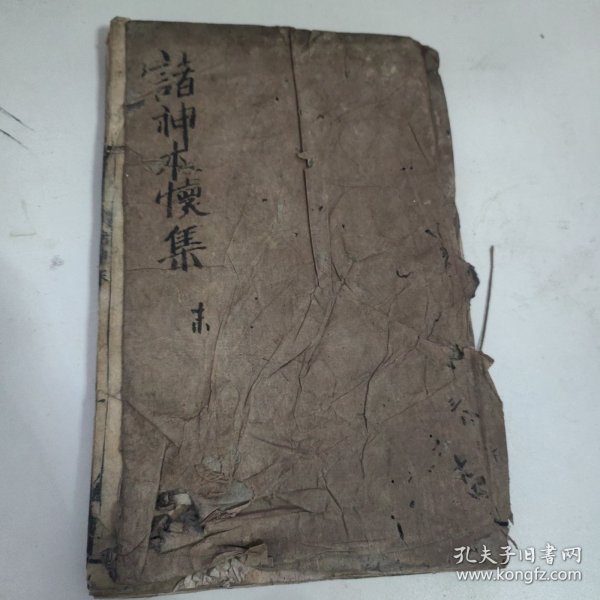 諸神本懷集
末
孔夫子旧書网
www.kongfz.com